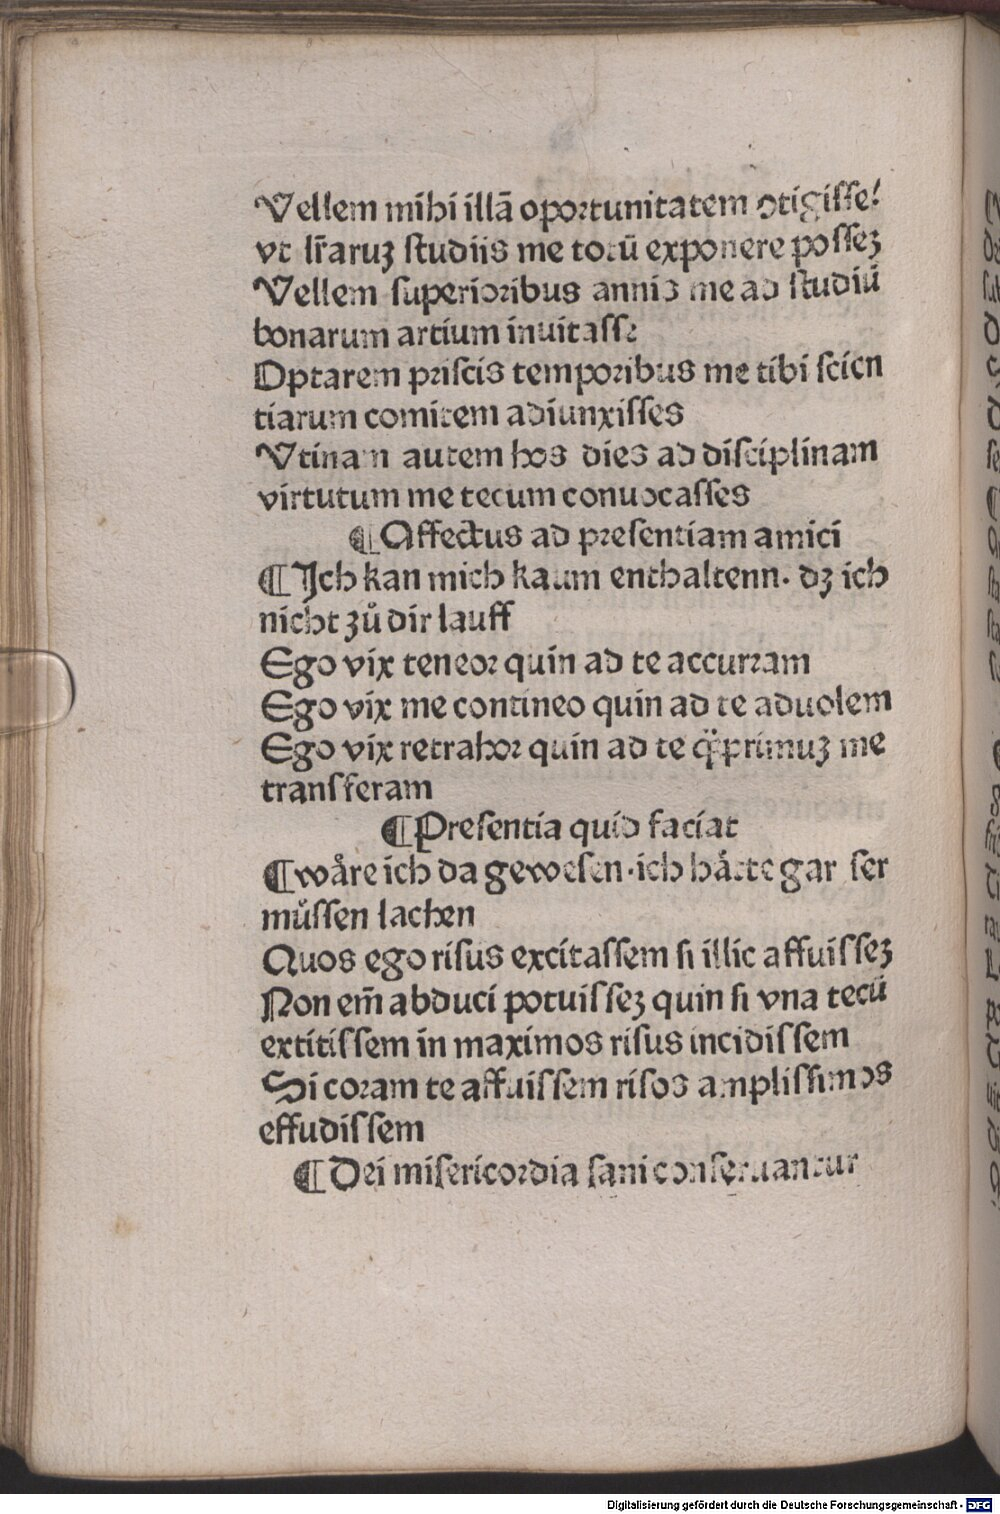 Vellem mihi illā oportunitatem ↄtigiſſe!
vt lr̄aruꝫ ſtudiis me totū exponere poſſeꝫ
Vellem ſuperioribus annis me ad ſtudiū
bonarum artium inuitaſſe
Optarem priſcis temporibus me tibi ſcien
tiarum comitem adiunxiſſes
Vtinam autem hos dies ad diſciplinam
virtutum me tecum conuocaſſes
¶Affectus ad preſentiam amici
¶Ich kan mich kaum enthaltenn. dꝫ ich
nicht zů dir lauff
Ego vix teneor quin ad te accurram
Ego vix me contineo quin ad te aduolem
Ego vix retrahor quin ad te qͣ̈primuꝫ me
transferam
¶Preſentia quid faciat
¶wåre ich da geweſen.ich håtte gar ſer
můſſen lachen
Quos ego riſus excitaſſem ſi illic affuiſſeꝫ
Non em̄ abduci potuiſſeꝫ quin ſi vna tecū
extitiſſem in maximos riſus incidiſſem
Si coram te affuiſſem riſos ampliſſimos
effudiſſem
¶Dei miſericordia ſani conſeruantur
Digitalisierung gefördert durch die Deutsche Forschungsgemeinschaft - DFG